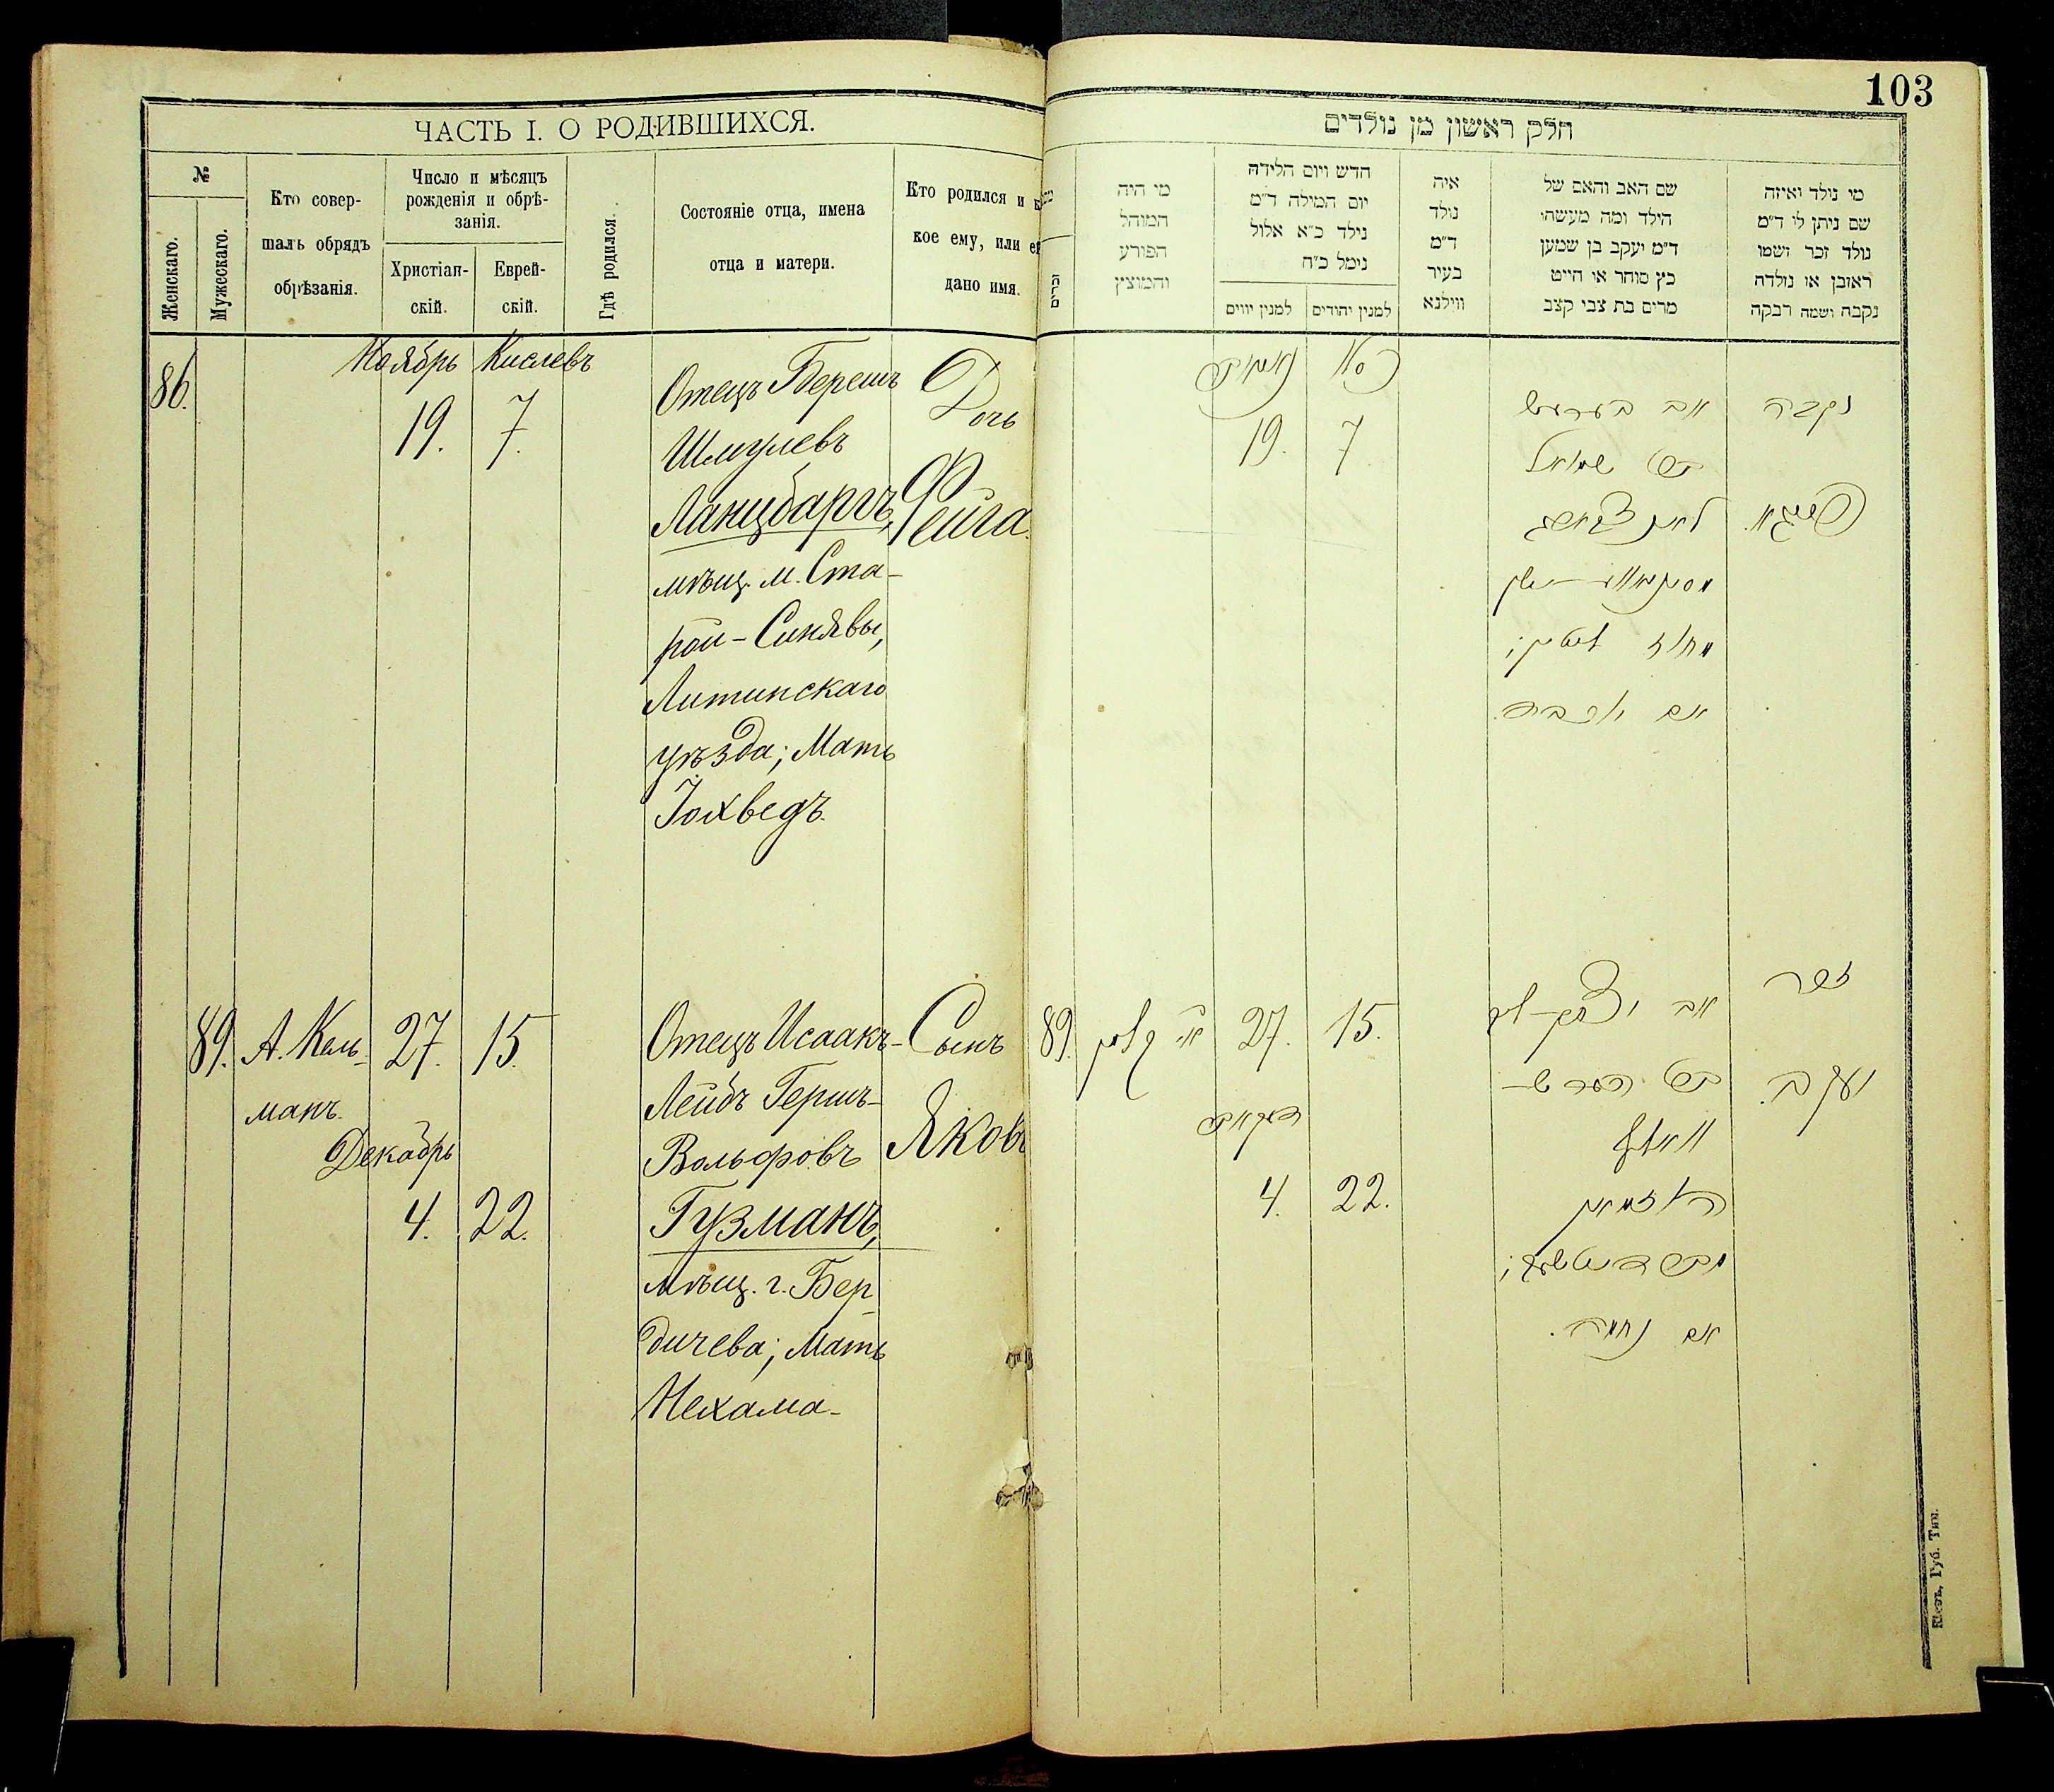 103
ЧАСТЬ I. О РОДИВШИХСЯ.
№
Женскаго.
Мужескаго.
Кто совер-
шалъ обрядъ
обрѣзанія.
Число и мѣсяцъ
рожденія и обрѣ-
занія.
Христіан-
скій.
Еврей-
скій.
Гдѣ родился.
Состояніе отца, имена
отца и матери.
Кто родился и к
кое ему, или е
дано имя.
Ноябрь Кислевъ
86.
19. 7.
Отецъ Берешъ
Шмулевъ
Ланцбаргъ,
мѣщ. м. Ста-
рой-Синявы,
Литинскаго
уѣзда; Мать
Іохведъ.
Дочь
Фейга.
89. А. Кель-
манъ.
27. 15.
Декабрь
4. 22.
Отецъ Исаакъ-
Лейбъ Гершъ-
Вольфовъ
Гузманъ,
мѣщ. г. Бер-
дичева; Мать
Нехама-
Сынъ
Яковъ
חלק ראשון מן נולדים
זכרים
מי היה
המוהל
הפורע
והמוצץ
חדש ויום הלידה
יום המילה ד״מ
נילד כ״א אלול
נימל כ״ח
למנין יווים
למנין יהודים
איה
נולד
ד״מ
בעיר
ווילנא
שם האב והאם של
הילד ומה מעשהו
ד״מ יעקב בן שמען
כץ סוחר או חייט
מרים בת צבי קצב
מי נולד ואיזה
שם ניתן לו ד״מ
נולד זכר ושמו
ראובן או נולדה
נקבה ושמה רבקה
19. 7.
נקבה
אב בערעש
שמואל
פייגא.
אם יוכבד.
89. 27. 15.
4. 22.
זכר
יעקב.
אב יצחק-ליב
וואלף
אם נחמה.
Кіевъ, Губ. Тип.